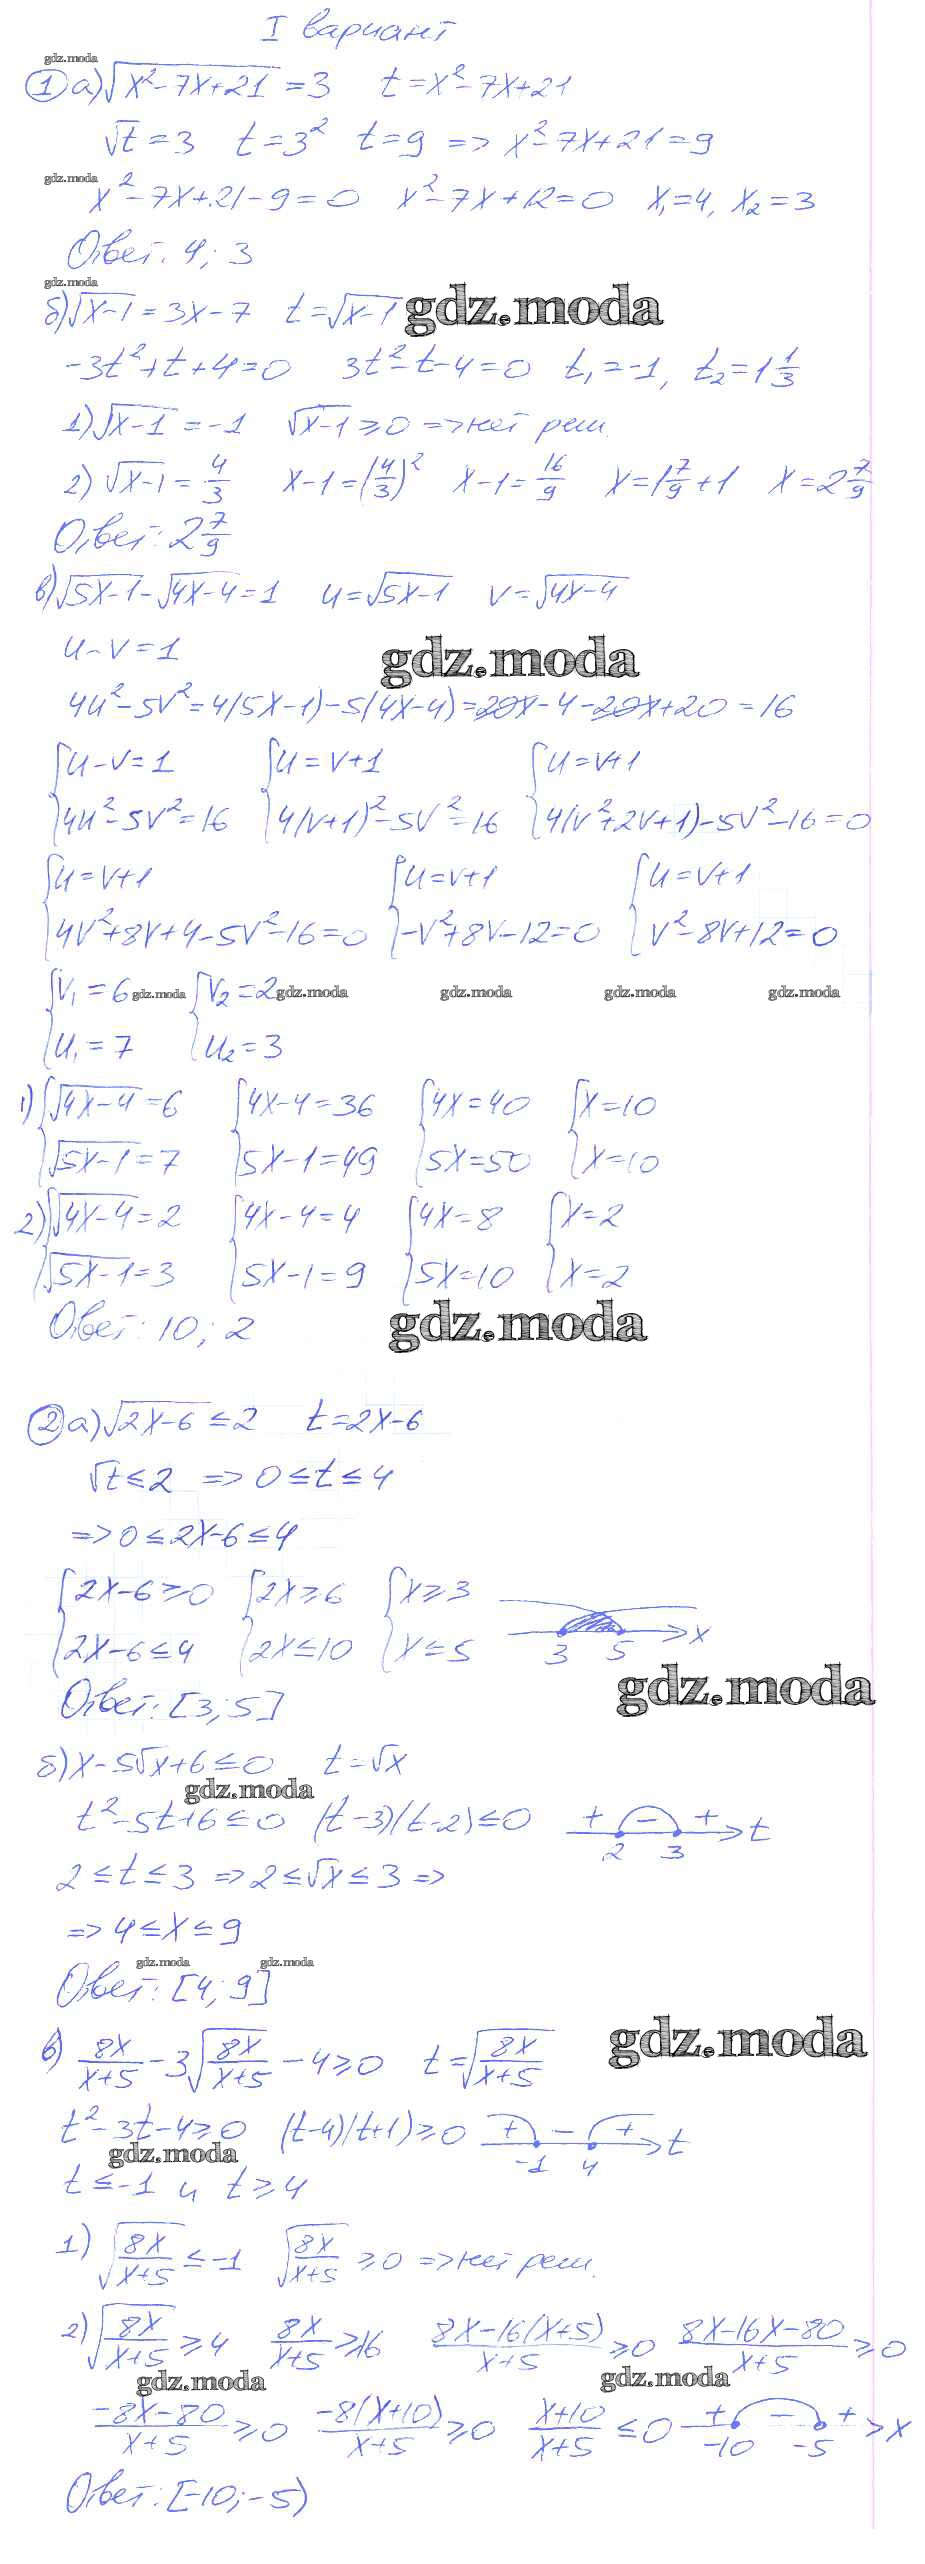 I вариант
gdz.moda
① а) √(x²-7x+21) = 3   t = x²-7x+21
√t = 3   t = 3²   t = 9 => x²-7x+21 = 9
gdz.moda
x²-7x+21-9=0   x²-7x+12=0   x₁=4, x₂=3
Ответ: 4; 3
gdz.moda
б) √(x-1) = 3x-7   t = √(x-1) gdz.moda
-3t²+t+4=0   3t²-t-4=0   t₁=-1, t₂=1 1/3
1) √(x-1) = -1   √(x-1) ≥ 0 => нет реш.
2) √(x-1) = 4/3   x-1 = (4/3)²   x-1 = 16/9   x = 1 7/9 + 1   x = 2 7/9
Ответ: 2 7/9
в) √(5x-1) - √(4x-4) = 1   u = √(5x-1)   v = √(4x-4)
u-v=1
gdz.moda
4u²-5v² = 4(5x-1)-5(4x-4) = 20x-4-20x+20 = 16
{u-v=1   {u=v+1   {u=v+1
{4u²-5v²=16   {4(v+1)²-5v²=16   {4(v²+2v+1)-5v²-16=0
{u=v+1   {u=v+1   {u=v+1
{4v²+8v+4-5v²-16=0   {-v²+8v-12=0   {v²-8v+12=0
{v₁=6 gdz.moda {v₂=2 gdz.moda gdz.moda gdz.moda gdz.moda
{u₁=7   {u₂=3
1) {√(4x-4)=6   {4x-4=36   {4x=40   {x=10
{√(5x-1)=7   {5x-1=49   {5x=50   {x=10
2) {√(4x-4)=2   {4x-4=4   {4x=8   {x=2
{√(5x-1)=3   {5x-1=9   {5x=10   {x=2
Ответ: 10; 2
gdz.moda
② а) √(2x-6) ≤ 2   t = 2x-6
√t ≤ 2 => 0 ≤ t ≤ 4
=> 0 ≤ 2x-6 ≤ 4
{2x-6≥0   {2x≥6   {x≥3
{2x-6≤4   {2x≤10   {x≤5   3   5   x
Ответ: [3; 5]
gdz.moda
б) x-5√x+6 ≤ 0   t = √x
gdz.moda
t²-5t+6 ≤ 0   (t-3)(t-2) ≤ 0   + - + t
2   3
2 ≤ t ≤ 3 => 2 ≤ √x ≤ 3 =>
=> 4 ≤ x ≤ 9
gdz.moda gdz.moda
Ответ: [4; 9]
gdz.moda
в) 8x/(x+5) - 3√(8x/(x+5)) - 4 ≥ 0   t = √(8x/(x+5))
t²-3t-4 ≥ 0   (t-4)(t+1) ≥ 0   + - + t
gdz.moda
-1   4
t ≤ -1 и t ≥ 4
1) √(8x/(x+5)) ≤ -1   √(8x/(x+5)) ≥ 0 => нет реш.
2) √(8x/(x+5)) ≥ 4   8x/(x+5) ≥ 16   (8x-16(x+5))/(x+5) ≥ 0   (8x-16x-80)/(x+5) ≥ 0
gdz.moda gdz.moda
(-8x-80)/(x+5) ≥ 0   -8(x+10)/(x+5) ≥ 0   (x+10)/(x+5) ≤ 0   + - + x
-10   -5
Ответ: [-10; -5)